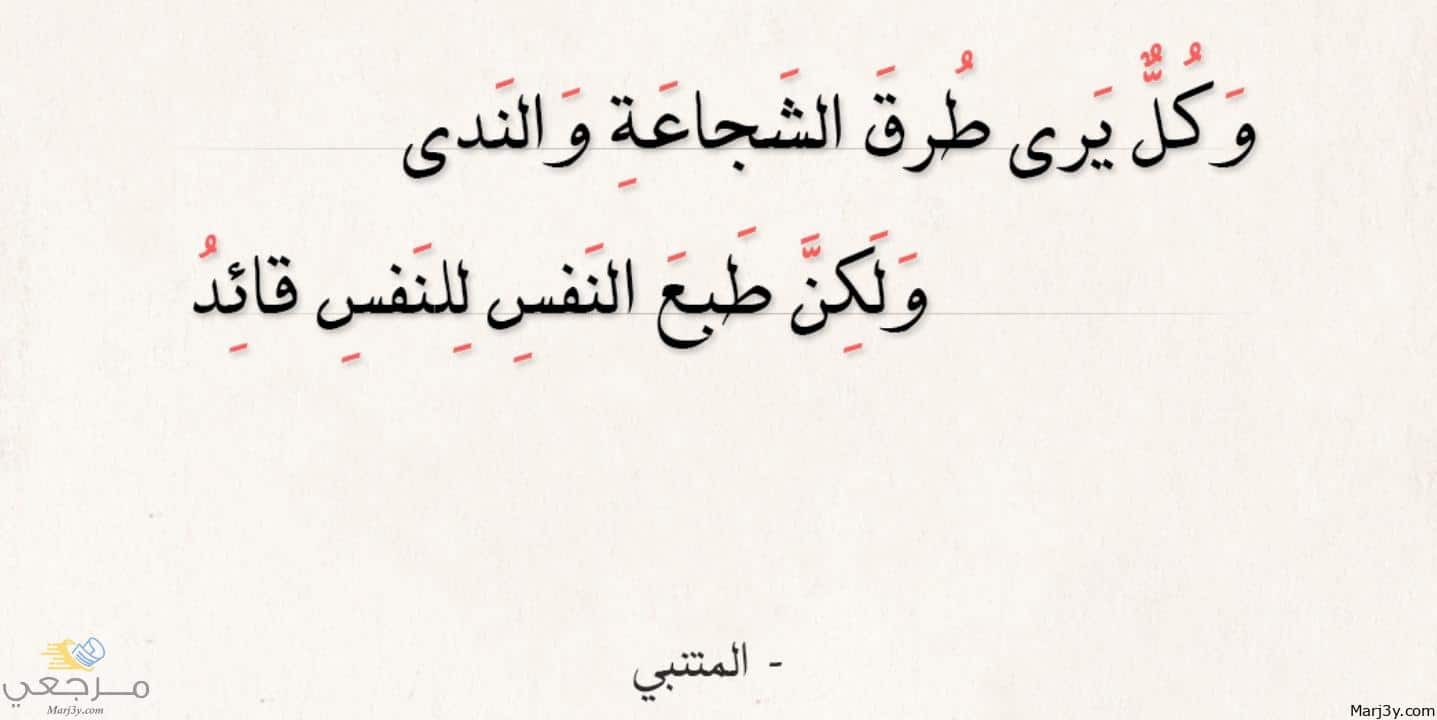 وَكُلٌّ يَرى طُرقَ الشَجاعَةِ وَالنَدى
وَلَكِنَّ طَبعَ النَفسِ لِلنَفسِ قائِدُ
- المتنبي
مرجعي
Marj3y.com
Marj3y.com